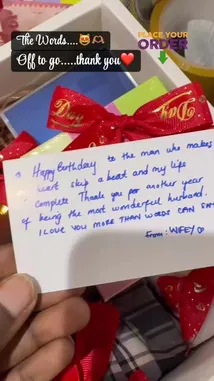 The Words....😻🫶🏾
Off to go.....thank you❤️
PLACE YOUR
ORDER
Happy Birthday to the man who makes
heart skip a beat and my life
complete Thank you for another year
of being the most wonderful husband.
I LOVE YOU MORE THAN WORDS CAN SAY
From: WIFEY♡